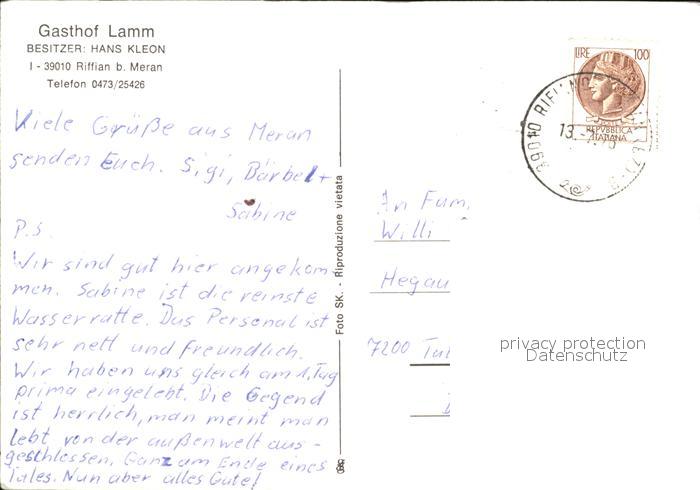 Gasthof Lamm
BESITZER: HANS KLEON
I - 39010 Riffian b. Meran
Telefon 0473/25426
Viele Grüße aus Meran
senden Euch. Sigi, Bärbel +
Sabine
P.S.
Wir sind gut hier angekom-
men. Sabine ist die reinste
Wasserratte. Das Personal ist
sehr nett und freundlich.
Wir haben uns gleich am 1. Tag
prima eingelebt. Die Gegend
ist herrlich, man meint man
lebt von der außenwelt aus-
geschlossen. Ganz am Ende eines
Tales. Nun aber alles Gute!
Foto SK. - Riproduzione vietata
LIRE 100
REPVBBLICA
ITALIANA
39010 RIF
13.
An Fam.
Willi
Hegau
7200 Tut
privacy protection
Datenschutz